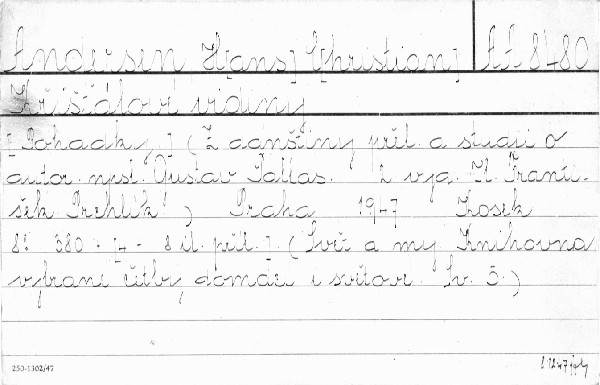 Andersen H[ans] C[hristian] AA 8480
Křišťálové vidiny
[Pohádky.] (Z dánštiny přel. a studii o
autor. naps. Gustav Pallas. 2 vyd. Il. Franti-
šek Prchlík) Praha 1947 Kosek
8° 380 - [4 - 8 il. příl.]. (Svět a my. Knihovna
vybrané četby, domácí i světové. Sv. 3.)
250-1302/47